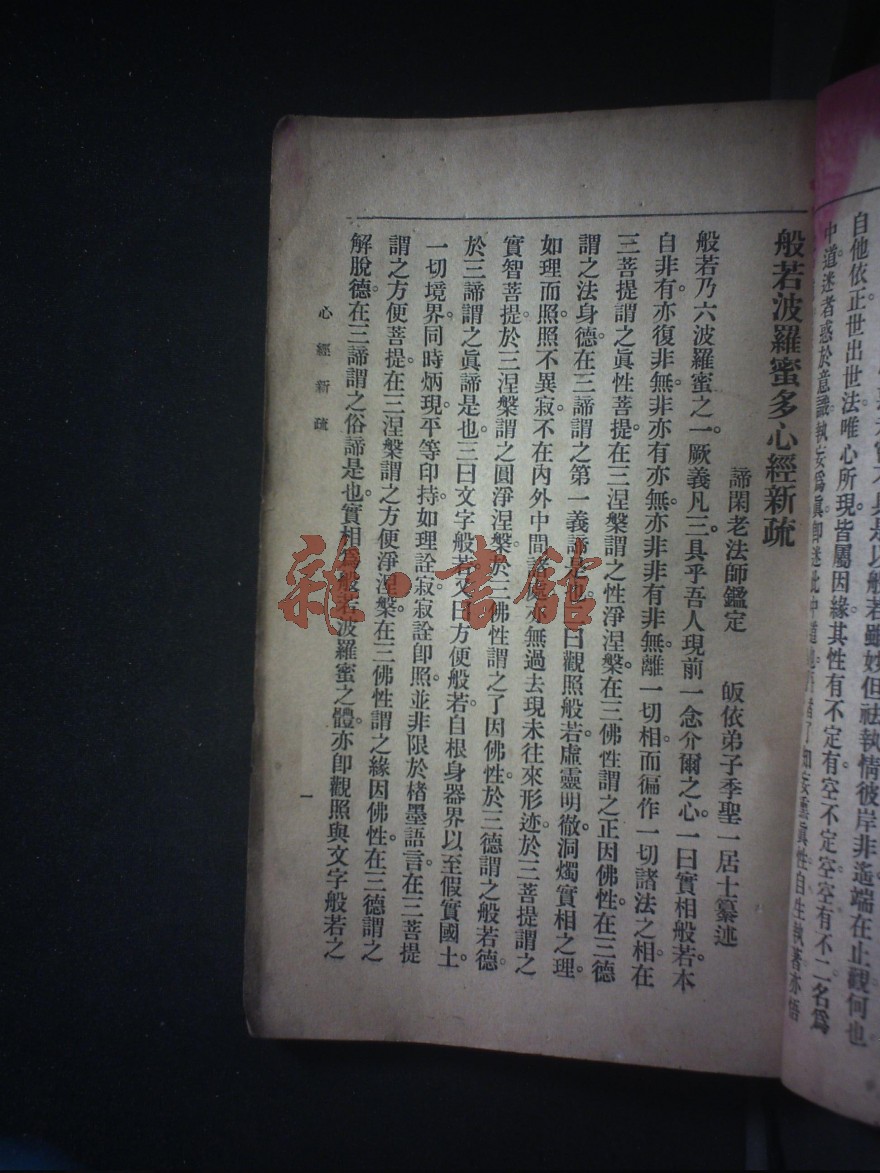 自他依正世出世法唯心所現皆屬因緣其性有不定有空不定空空有不二名爲
中道迷者惑於意識執妄爲眞卽迷此中道
般若波羅蜜多心經新疏
諦閑老法師鑑定　皈依弟子季聖一居士纂述
般若乃六波羅蜜之一。厥義凡三具乎吾人現前一念介爾之心。一曰實相般若本
自非有亦復非無非亦有亦無亦非非有非無。離一切相而徧作一切諸法之相在
三菩提謂之眞性菩提。在三涅槃謂之性淨涅槃。在三佛性謂之正因佛性。在三德
謂之法身德。在三諦謂之第一義諦是也。曰觀照般若。虛靈明徹洞燭實相之理。
如理而照。照不異寂。不在內外中間諸處亦無過去現未往來形迹。於三菩提謂之
實智菩提。於三涅槃謂之圓淨涅槃。於三佛性謂之了因佛性。於三德謂之般若德。
於三諦謂之眞諦是也。三曰文字般若。又曰方便般若。自根身器界以至假實國土
一切境界。同時炳現。平等印持。如理詮寂。寂詮卽照。並非限於楮墨語言。在三菩提
謂之方便菩提。在三涅槃謂之方便淨涅槃。在三佛性謂之緣因佛性。在三德謂之
解脫德。在三諦謂之俗諦是也。實相爲般若波羅蜜之體。亦卽觀照與文字般若之
心經新疏
一
雜·書館